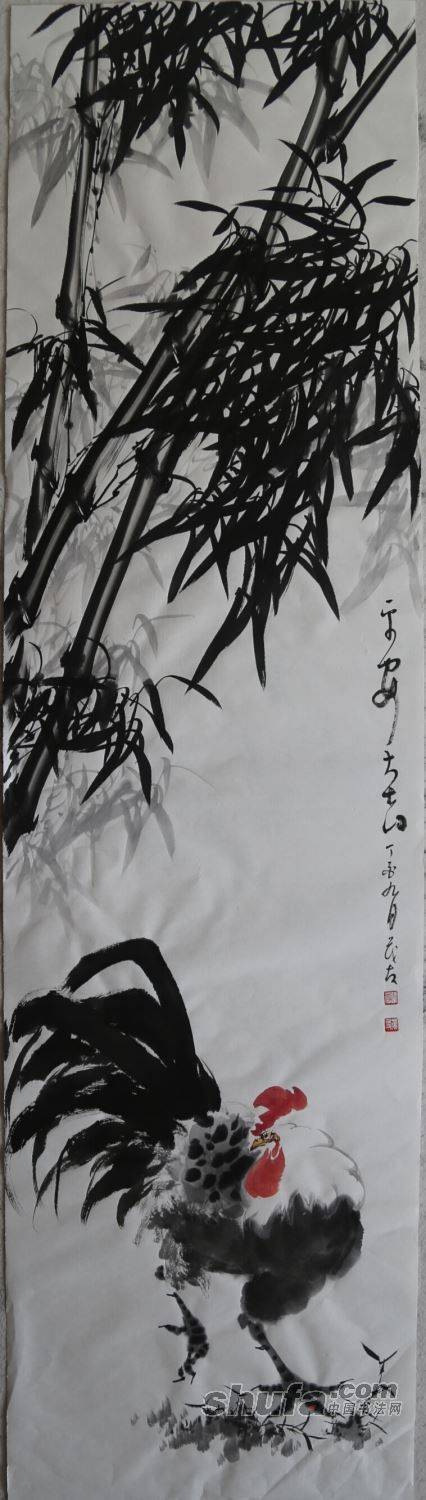 平安大吉
丁酉九月茂古
shufa.com
中国书法网